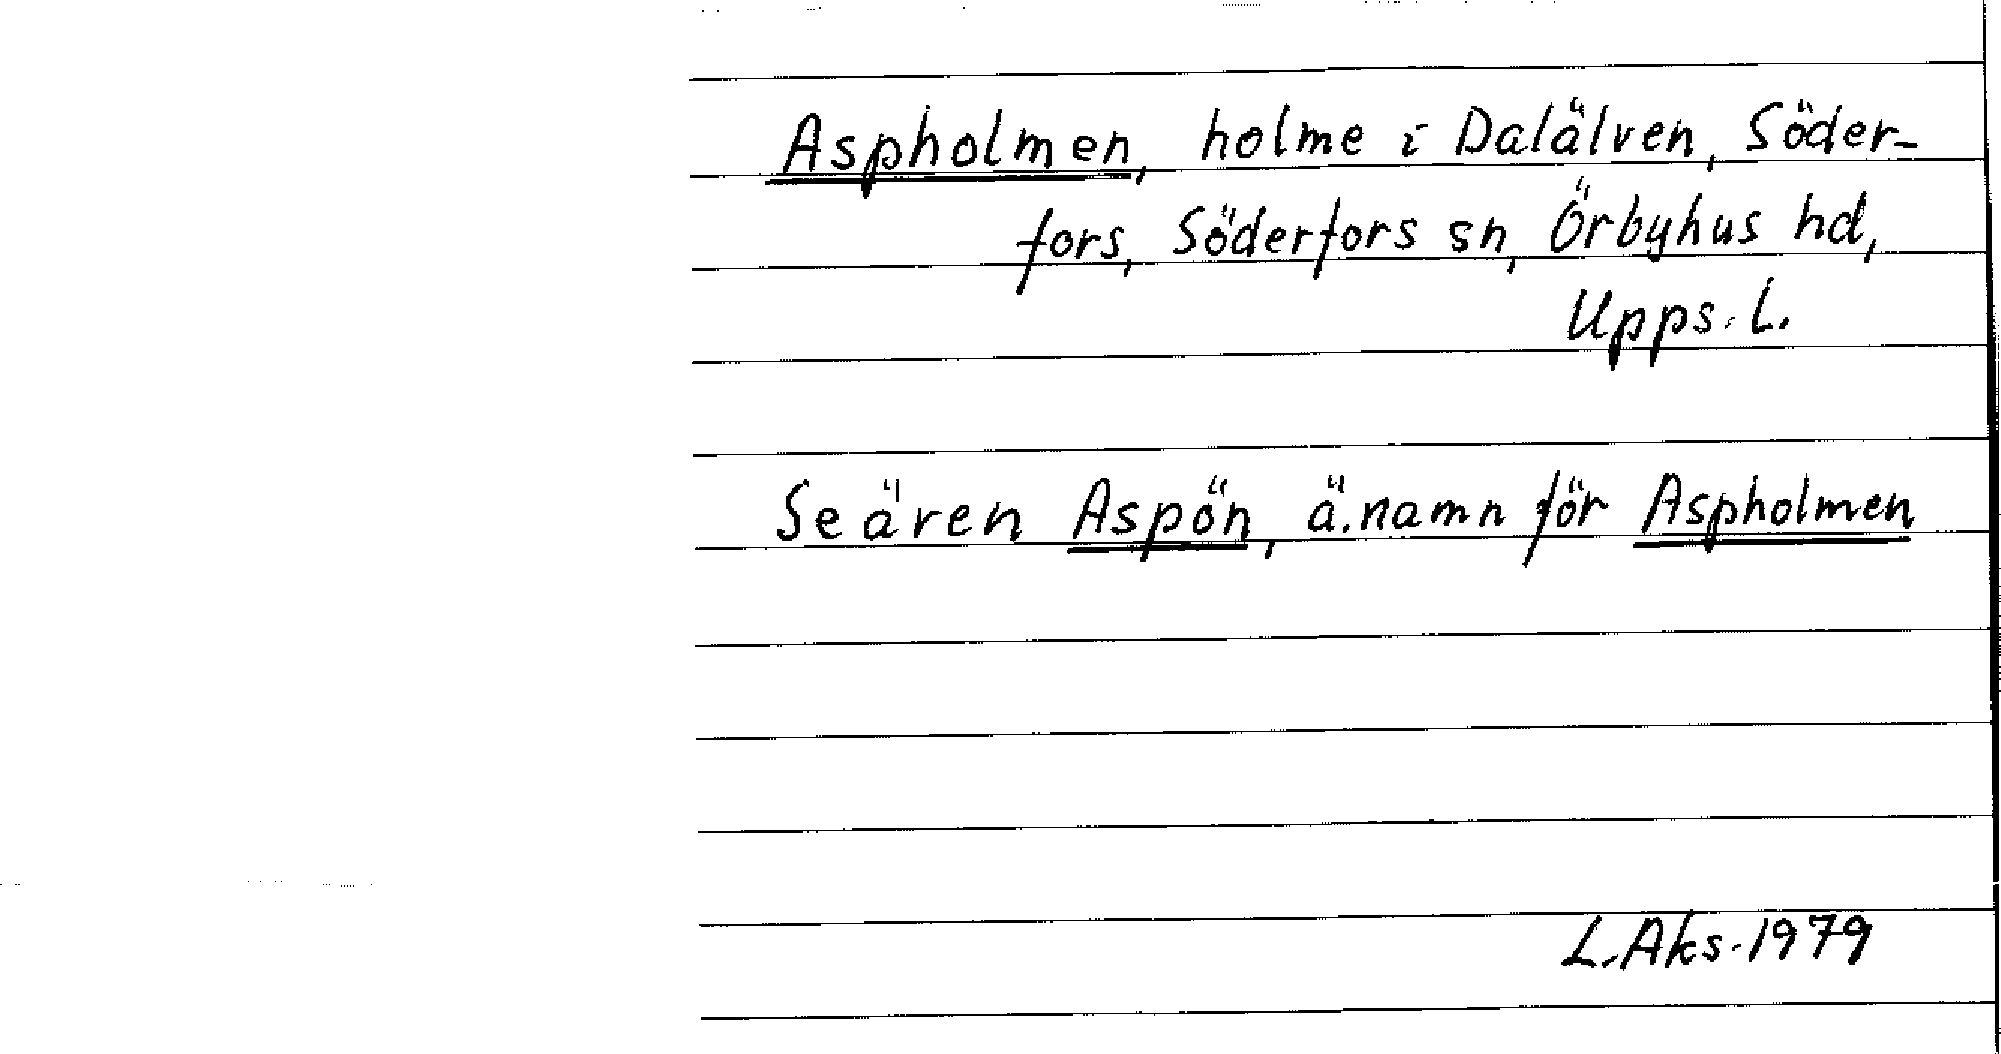 Aspholmen, holme i Dalälven, Söder-
fors, Söderfors sn, Örbyhus hd,
Upps. L.
Se även Aspön, ä. namn för Aspholmen
L. Aks. 1979